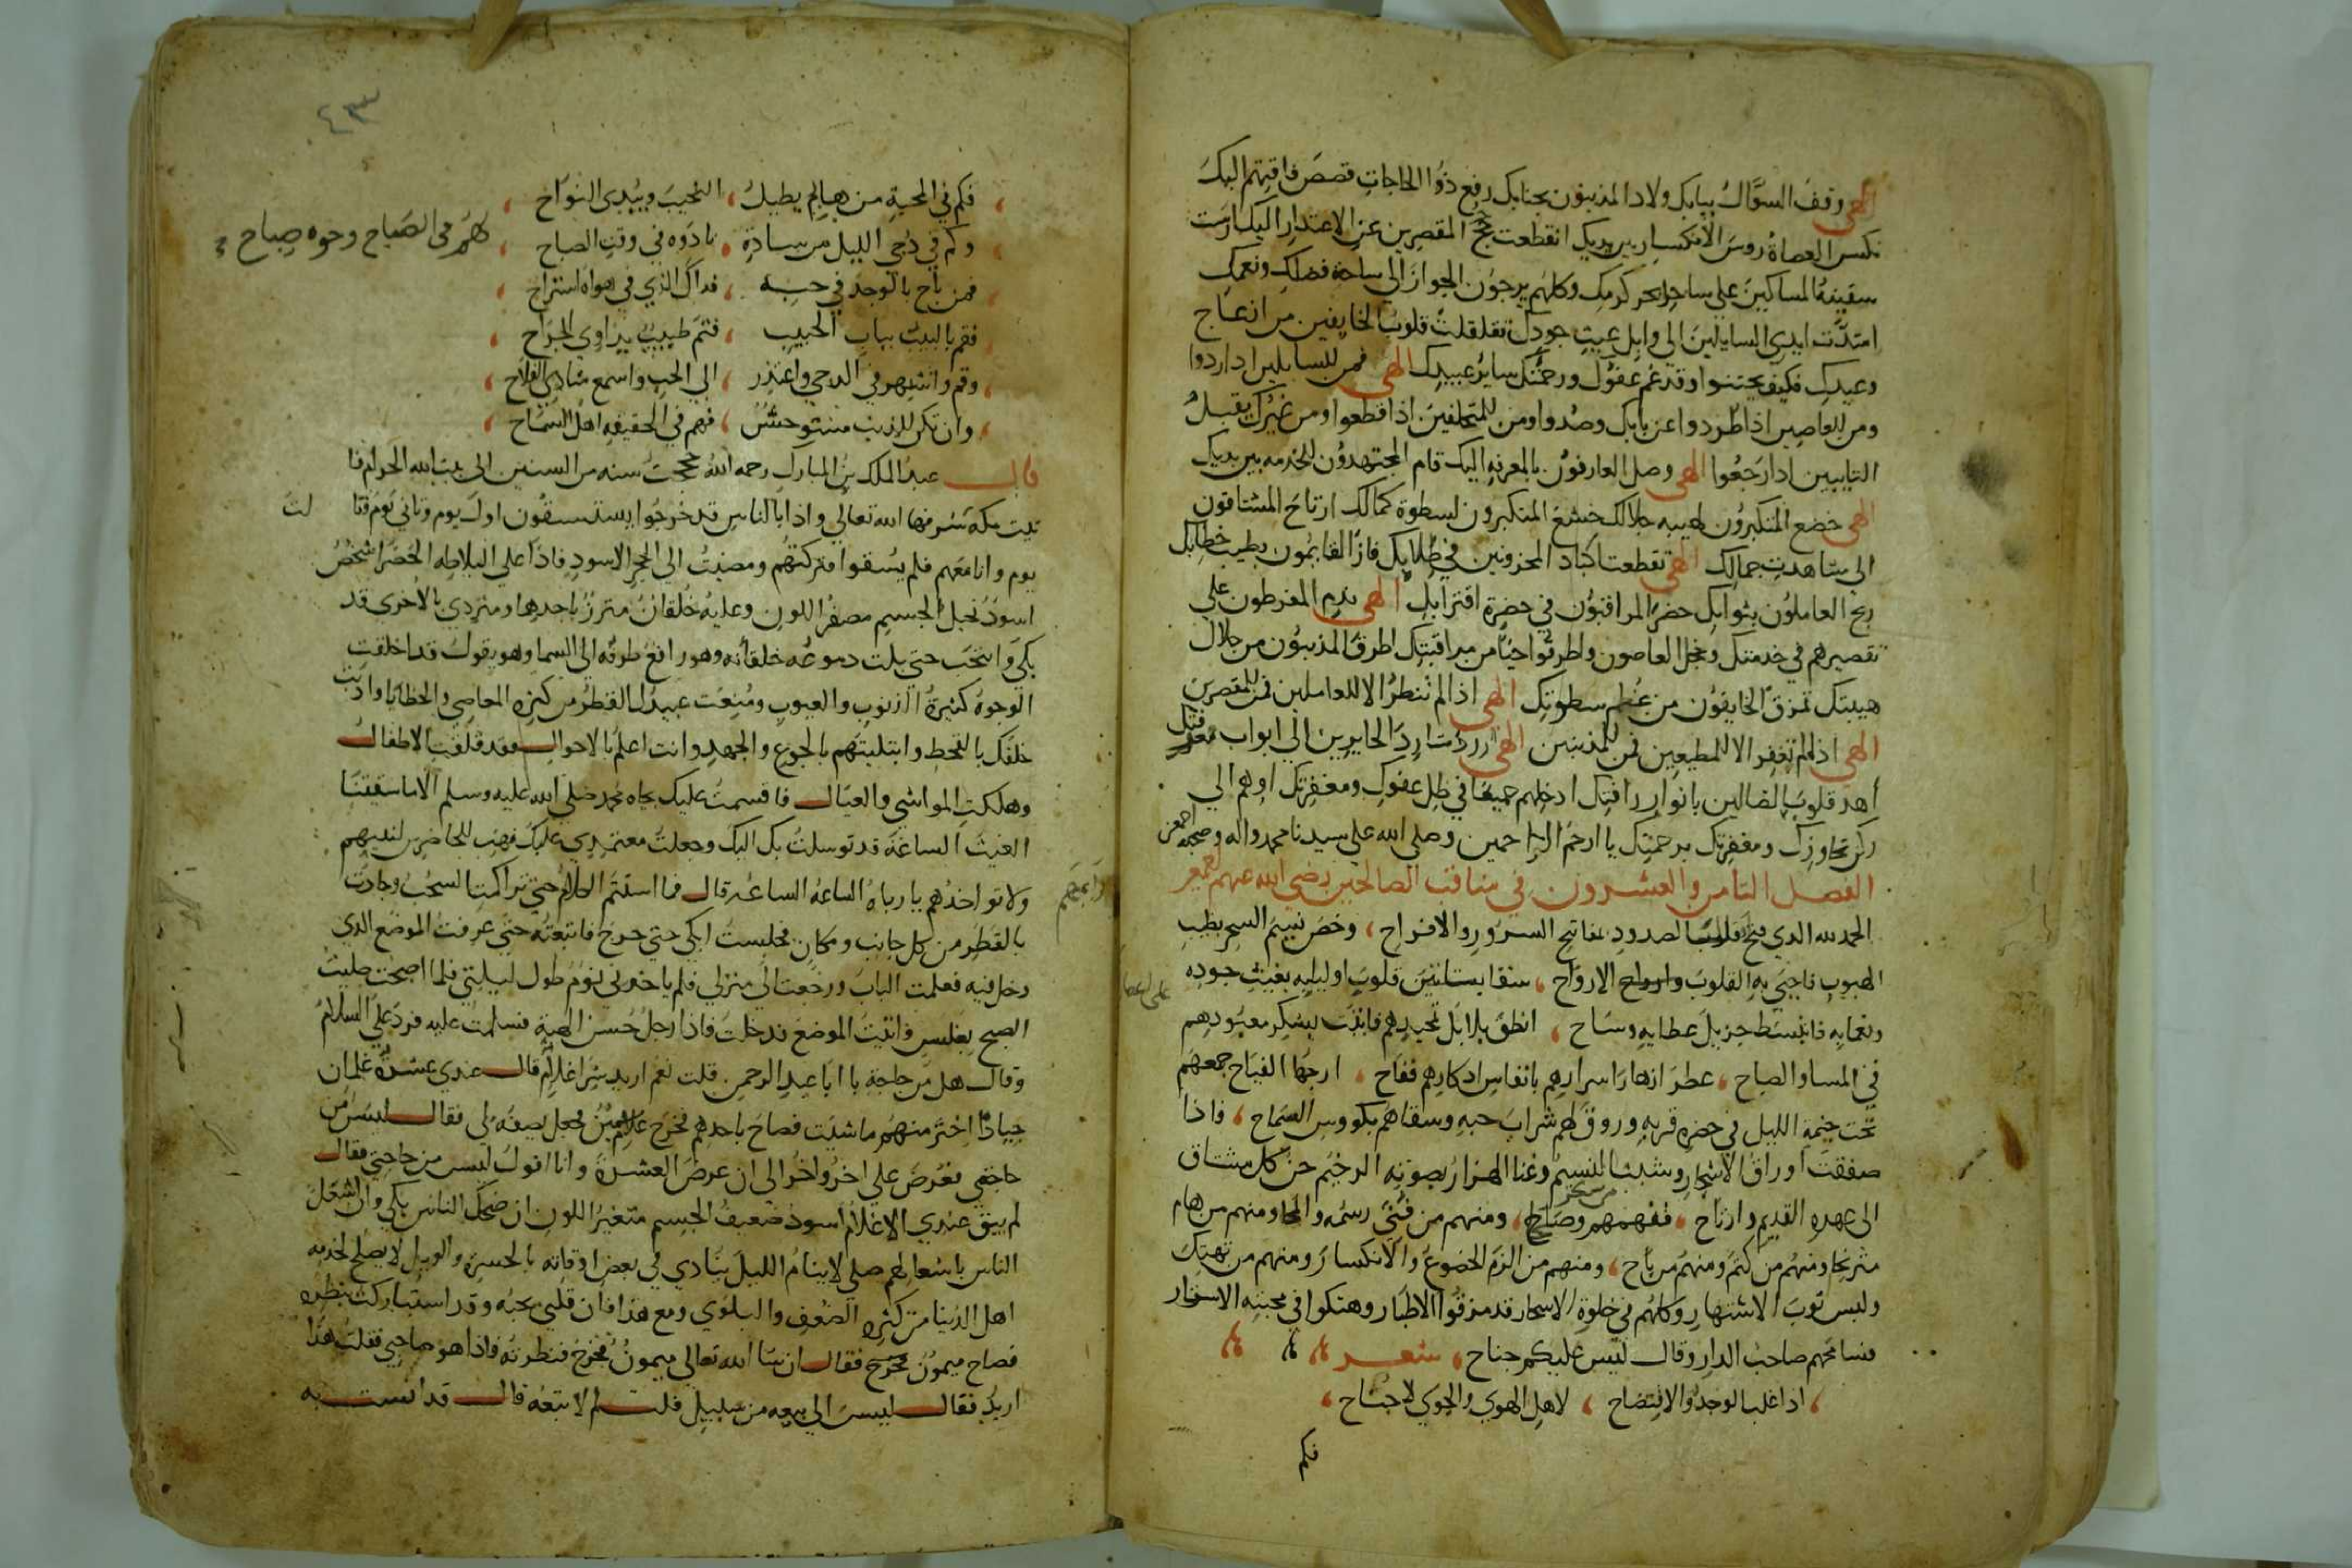 الهي وقف السؤال ببابك ولاد المذنبون بجنابك رفع ذوا الحاجات قصص فاقتهم اليك
نكس العصاة روس الانكسار بين يديك انقطعت حجج المقصرين عن الاعتدار اليك ارست
سفينة المساكين على ساحل بحر كرمك وكلهم يرجون الجواز الى ساحة فضلك ونعمك
امتدت ايدي السايلين الى وابل غيث جودك تقلقلت قلوب الخايفين من انزعاج
وعيدك فكيف وقد عم عفوك ورحمتك ساير عبيدك الهي فمن للسايلين ادا ردوا
ومن للعاصين اذا طردوا عن بابك وصدوا ومن للمتخلفين اذا قطعوا ومن غيرك يقبل
التايبين ادا رجعوا الهي وصل العارفون بالمعرفه اليك قام المجتهدون للخدمه بين يديك
الهي خضع المتكبرون لهيبه جلالك خشع المتكبرون لسطوة كمالك ارتاح المشتاقون
الى مشاهدت جمالك الهي تقطعت اكباد المحزونين في طلابك فاز القايمون بطيب خطابك
ربح العاملون بثوابك حضر المراقبون في حضرة اقترابك الهي ندم المفرطون على
تقصيرهم في خدمتك وخجل العاصون واطرقوا حيا من مراقبتك اطرق المذنبون من جلال
هيبتك تمزق الخايفون من عظم سطوتك الهي اذا لم تنظر الا للعاملين فمن للمقصرين
الهي اذا لم تغفر الا للمطيعين فمن للمذنبين الهي رد الحايرين الى ابواب
اهد قلوب الضالين بانوار رافتك ادخلهم جميعا في ظل عفوك ومغفرتك اوهم الى
ركن تجاوزك ومغفرتك برحمتك يا ارحم الراحمين وصلى الله على سيدنا محمد واله وصحبه اجمعين
الفصل الثامن والعشرون في مناقب الصالحين رضي الله عنهم
الحمد لله الدي فتح الصدور بمفاتيح السرور والافراح، وخص نسيم السحر بطيب
الهبوب فاحيي به القلوب وارواح الارواح، سقا بساتين قلوب اوليايه بغيث جوده
ونعمايه فانبسط جزيل عطايه وساح، انطق بلابل تحيدهم بشكر معبودهم
في المسا والصباح، عطر ازهار اسرارهم بانفاس ادكارهم ففاح، جمعهم
تحت خيمة الليل في حضرة قربه وروق لهم شراب حبه وسقاهم بكووس السماح، فاذا
صفقت اوراق الاشجار النسيم وغنا الهزار بصوته الرخيم حن كل مشتاق
الى عهده القديم وارتاح، فمنهم وصاح، ومنهم من فني رسمه ومنهم من هام
ومنهم من كتم ومنهم من باح، ومنهم من الزم الخضوع والانكسار ومنهم من تهتك
ولبس ثوب الاشتهار وكلهم في خلوة الاسحار قد مزقوا الاطمار وهتكوا في محبته الاستار
فسامحهم صاحب الدار وقال ليس عليكم جناح، شعر
اذا غلب الوجد والافتضاح، لاهل الهوى والجوي لا جناح،
فكم
٤٣
فكم في المحبة من هايم يطيل، النحيب ويبدي النواح،
وكم في دجى الليل من سادة، نادوه في وقت الصباح، لهم في الصباح وجوه صباح
فمن باح بالوجد في حبه، فداك الذي في هواه استراح،
فقم بالبيت بباب الحبيب، فثم طبيب يداوي الجراح،
وقم وانتبه في الدجي واعتذر، الى الحب واسمع منادي الفلاح،
وان تكن للذنب مستوحش، فهم في الحقيقه اهل السماح،
قال عبد الملك بن المبارك رحمه الله حججت سنه من السنين الى بيت الله الحرام فا
تيت مكة شرفها الله تعالى واذا بالناس قد خرجوا يستسقون اول يوم وثاني يوم وثا لث
يوم وانا معهم فلم يسقوا فتركتهم ومضيت الى الحجر الاسود فاذا على البلاطه الخضرا شخص
اسود نحيل الجسم مصفر اللون وعليه خلقان متزر باحدها ومتردي بالاخرى قد
بكى وانتحب حتى بلت دموعه خلقانه وهو رافع طرفه الى السما وهو يقول قد اخلقت
الوجوه كثرة الذنوب والعيوب ومنعت عبيدك القطر من كثره المعاصي والخطايا وادبت
خلقك بالقحط وابتليتهم بالجوع والجهد وانت اعلم بالاحوال فقد قلقت الاطفال
وهلكت المواشي والعيال فاقسمت عليك بجاه محمد صلى الله عليه وسلم الا ما سقيتنا
الغيث الساعة قد توسلت بك اليك وجعلت معتمدي عليك فهب للحاضرين لنبيهم
ولا تواخدهم يا رباه الساعة الساعه قال فما استتم الكلام حتى تراكمت السحب وجادت
بالقطر من كل جانب ومكان فجلست ابكي حتى خرج فاتبعته حتى عرفت الموضع الذي
دخل فيه فعلمت الباب ورجعت الى منزلي فلم ياخدني نوم طول ليلتي فلما اصبحت صليت
الصبح بغلس واتيت الموضع فدخلت فاذا رجل حسن الهية فسلمت عليه فرد علي السلام
وقال هل من حاجة يا ابا عبد الرحمن قلت نعم اريد شرا غلام قال عندي عشرة غلمان
جيادا اختر منهم ما شئت فصاح باحدهم فخرج غلام فجعل يصفه لي فقال ليس من
حاجتي فعرض علي اخر واخر الى ان عرض العشرة وانا اقول ليس من حاجتي فقال
لم يبق عندي الا غلام اسود ضعيف الجسم متغير اللون ان ضحك الناس بكي وان اشتغل
الناس باشغالهم صلى لا ينام الليل ينادي في بعض اوقاته بالحسرة والويل لا يصلح لخدمه
اهل الدنيا من كثره الضعف والبلوي ومع هذا فان قلبي يحبه وقد استباركت بنظره
فصاح ميمون فخرج فقال ان شا الله تعالى ميمون فخرج فنظرته فاذا هو صاحبي فقلت هذا
اريد فقال ليس الى بيعه من سبيل قلت لم لا تبعه قال قد انست به